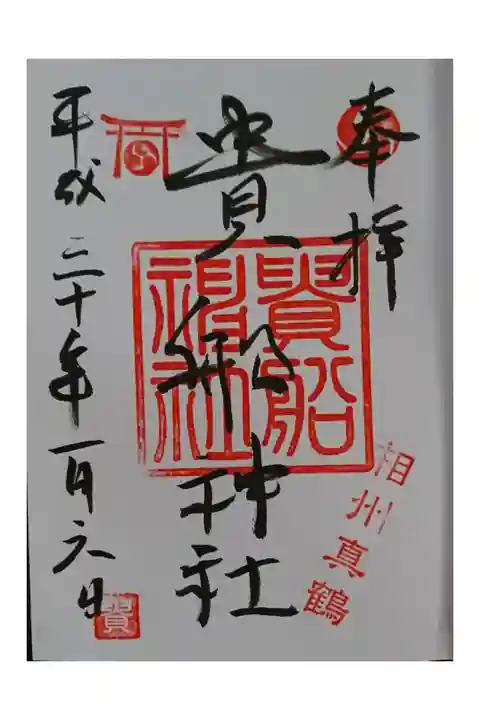 奉拝
相州真鶴
貴船神社
貴船神社
平成二十年一月六日
貴